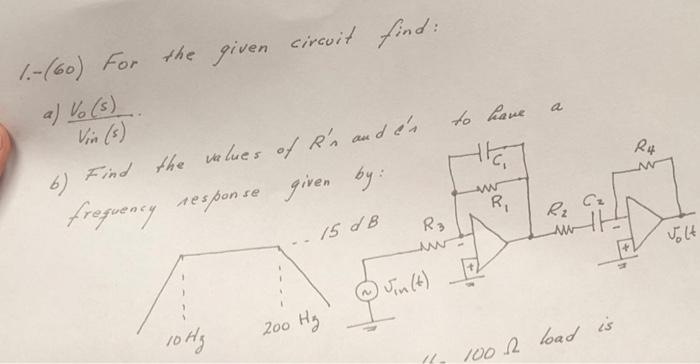 1.-(60) For the given circuit find:
a) Vo(s)
Vin(s)
b) Find the values of R's and C's to have a
frequency response given by:
15 dB
10 Hz
200 Hz
R3
C1
R1
R2
C2
R4
Vin(t)
Vo(t
100 Ω load is